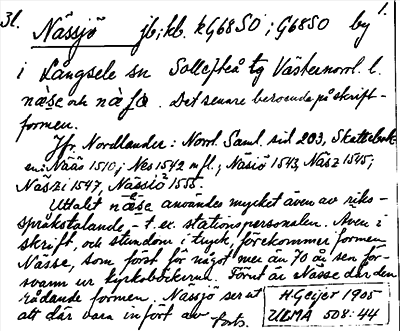 31. Nässjö jb; kb. kG68SO; G68SO by 1.
i Långsele sn Sollefteå tg Västernorrl. l.
næ̀se och næ̀ʃø. Det senare beroende på skrift-
formen.
Jfr. Nordlander: Norrl. Saml. sid 203, Skattebok-
en: Nääs 1510; Nes 1542 m fl.; Näsiö 1543, Näsz 1545;
Naszi 1547, Nässiö 1555.
Uttalt næ̀se användes mycket även av riks-
språkstalande, t. ex. stationspersonalen. Även i
skrift, och stundom i tryck, förekommer formen
Nässe, som först för något mer än 70 år sen för-
svann ur kyrkoböckerna. Förut är Nässe där den
rådande formen. Nässjö ser ut
att där vara infört av forts.
H. Geijer 1905
ULMA 508:44